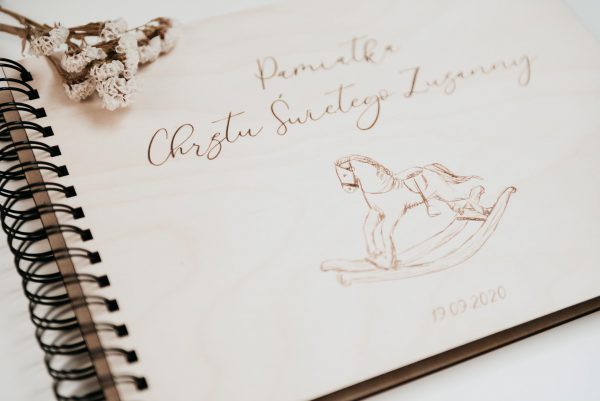 Pamiątka
Chrztu Świętego Zuzanny
19.09.2020